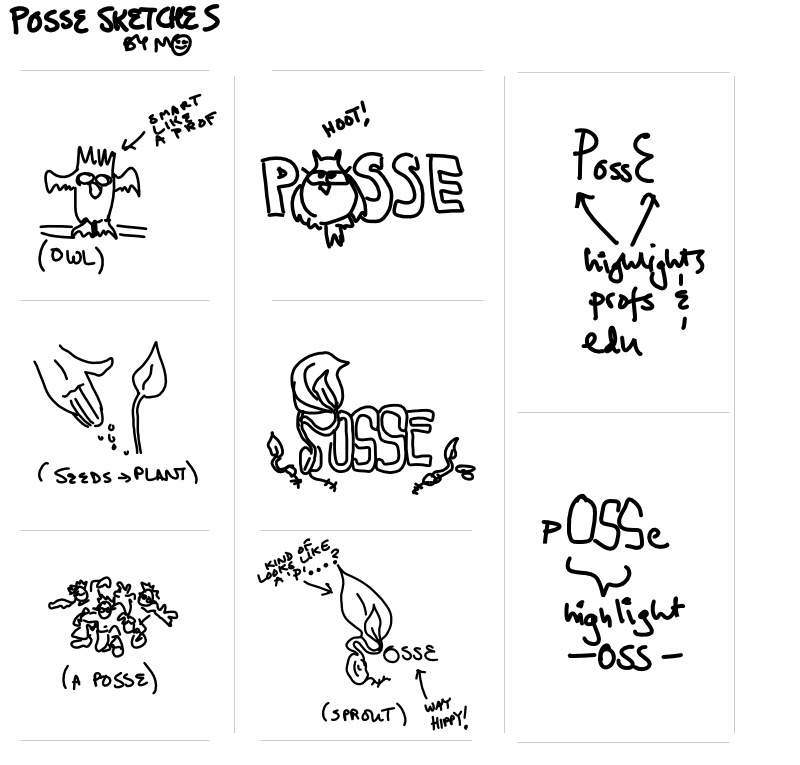 POSSE SKETCHES
BY MO
SMART
LIKE
A PROF
(OWL)
(SEEDS → PLANT)
(A POSSE)
HOOT!
POSSE
POSSE
KIND OF
LOOKS LIKE
A 'P'.....?
OSSE
(SPROUT)
WAY
HIPPY!
PossE
highlights
profs &
edu
pOSSe
highlight
—OSS—